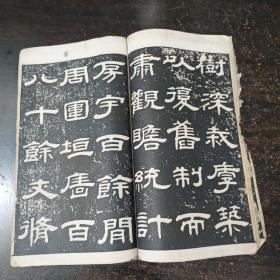 樹深栽厚築
以復舊制而
肅觀瞻統計
房宇百餘間
周圍垣墉百
八十餘丈脩